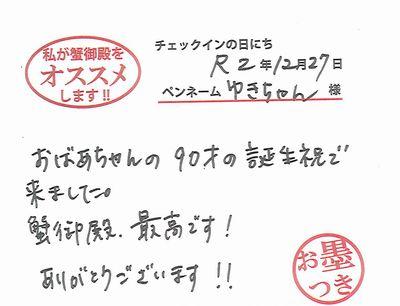 私が蟹御殿を
オススメ
します!!
チェックインの日にち
R2年12月27日
ペンネーム ゆきちゃん 様
おばあちゃんの90才の誕生祝で
来ました。
蟹御殿、最高です!
ありがとうございます!!
お墨
つき